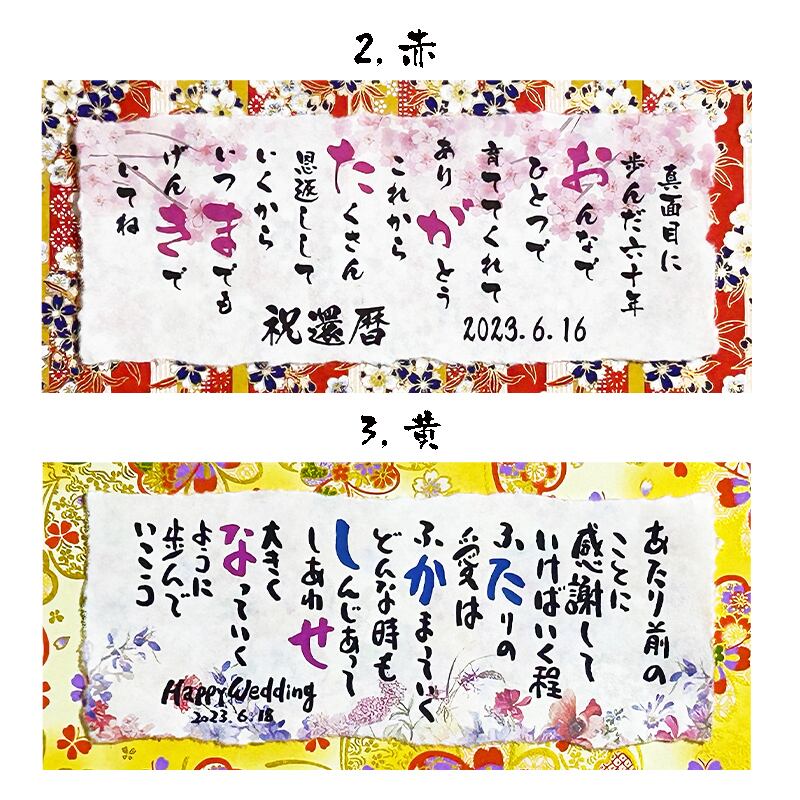 2, 赤
真面目に
歩んだ六十年
おんなで
ひとつで
育ててくれて
ありがとう
これから
たくさん
恩返しして
いくから
いつまでも
げんきで
いてね
祝還暦
2023.6.16
3, 黄
あたり前の
ことに
感謝して
いけばいく程
ふたりの
愛は
ふかまっていく
どんな時も
しんじあって
しあわせ
大きく
なっていく
ように
歩んで
いこう
Happy Wedding
2023.6.18